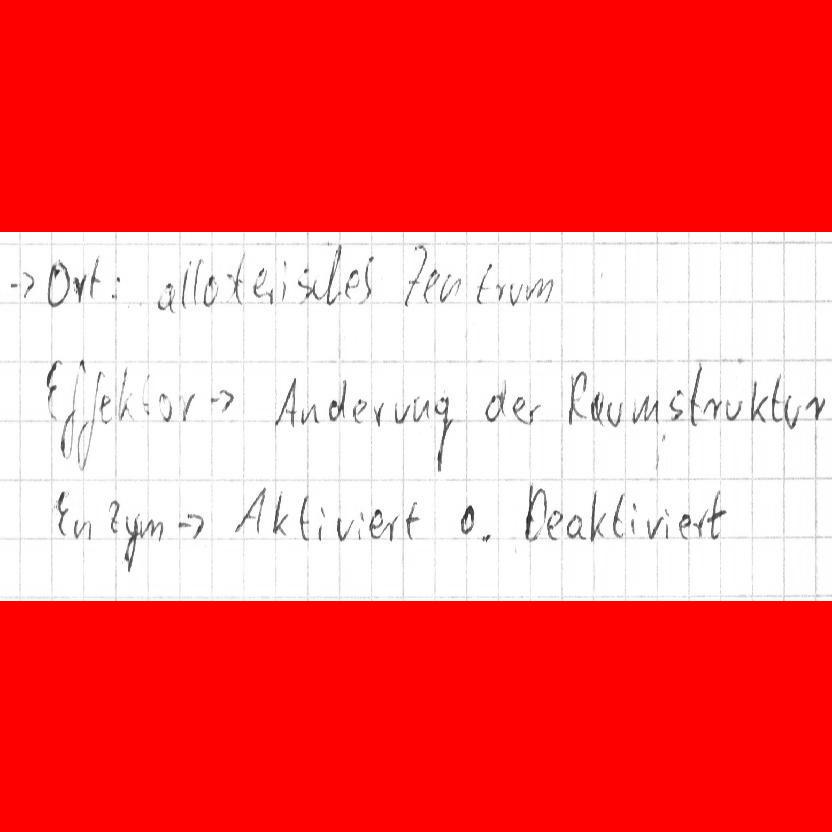 -> Ort: alloterisches Zentrum
Effektor -> Anderung der Raumstruktur
Enzym -> Aktiviert o. Deaktiviert